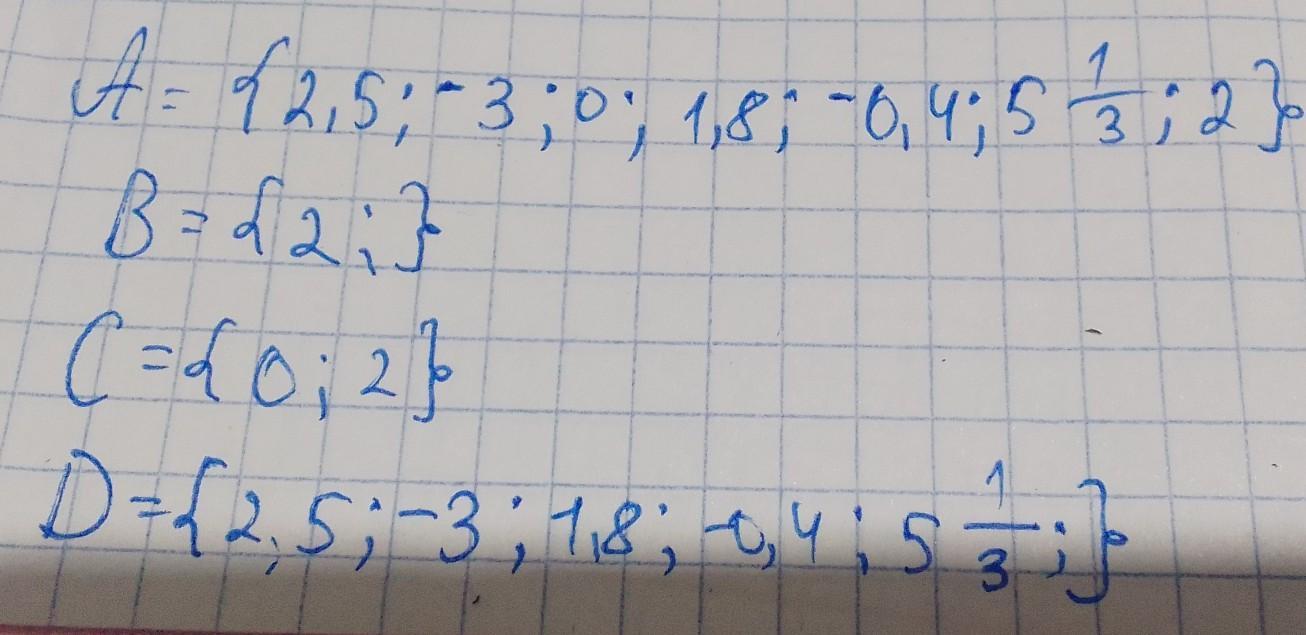 A = {2,5; -3; 0; 1,8; -0,4; 5 1/3; 2}
B = {2;}
C = {0; 2}
D = {2,5; -3; 1,8; -0,4; 5 1/3;}